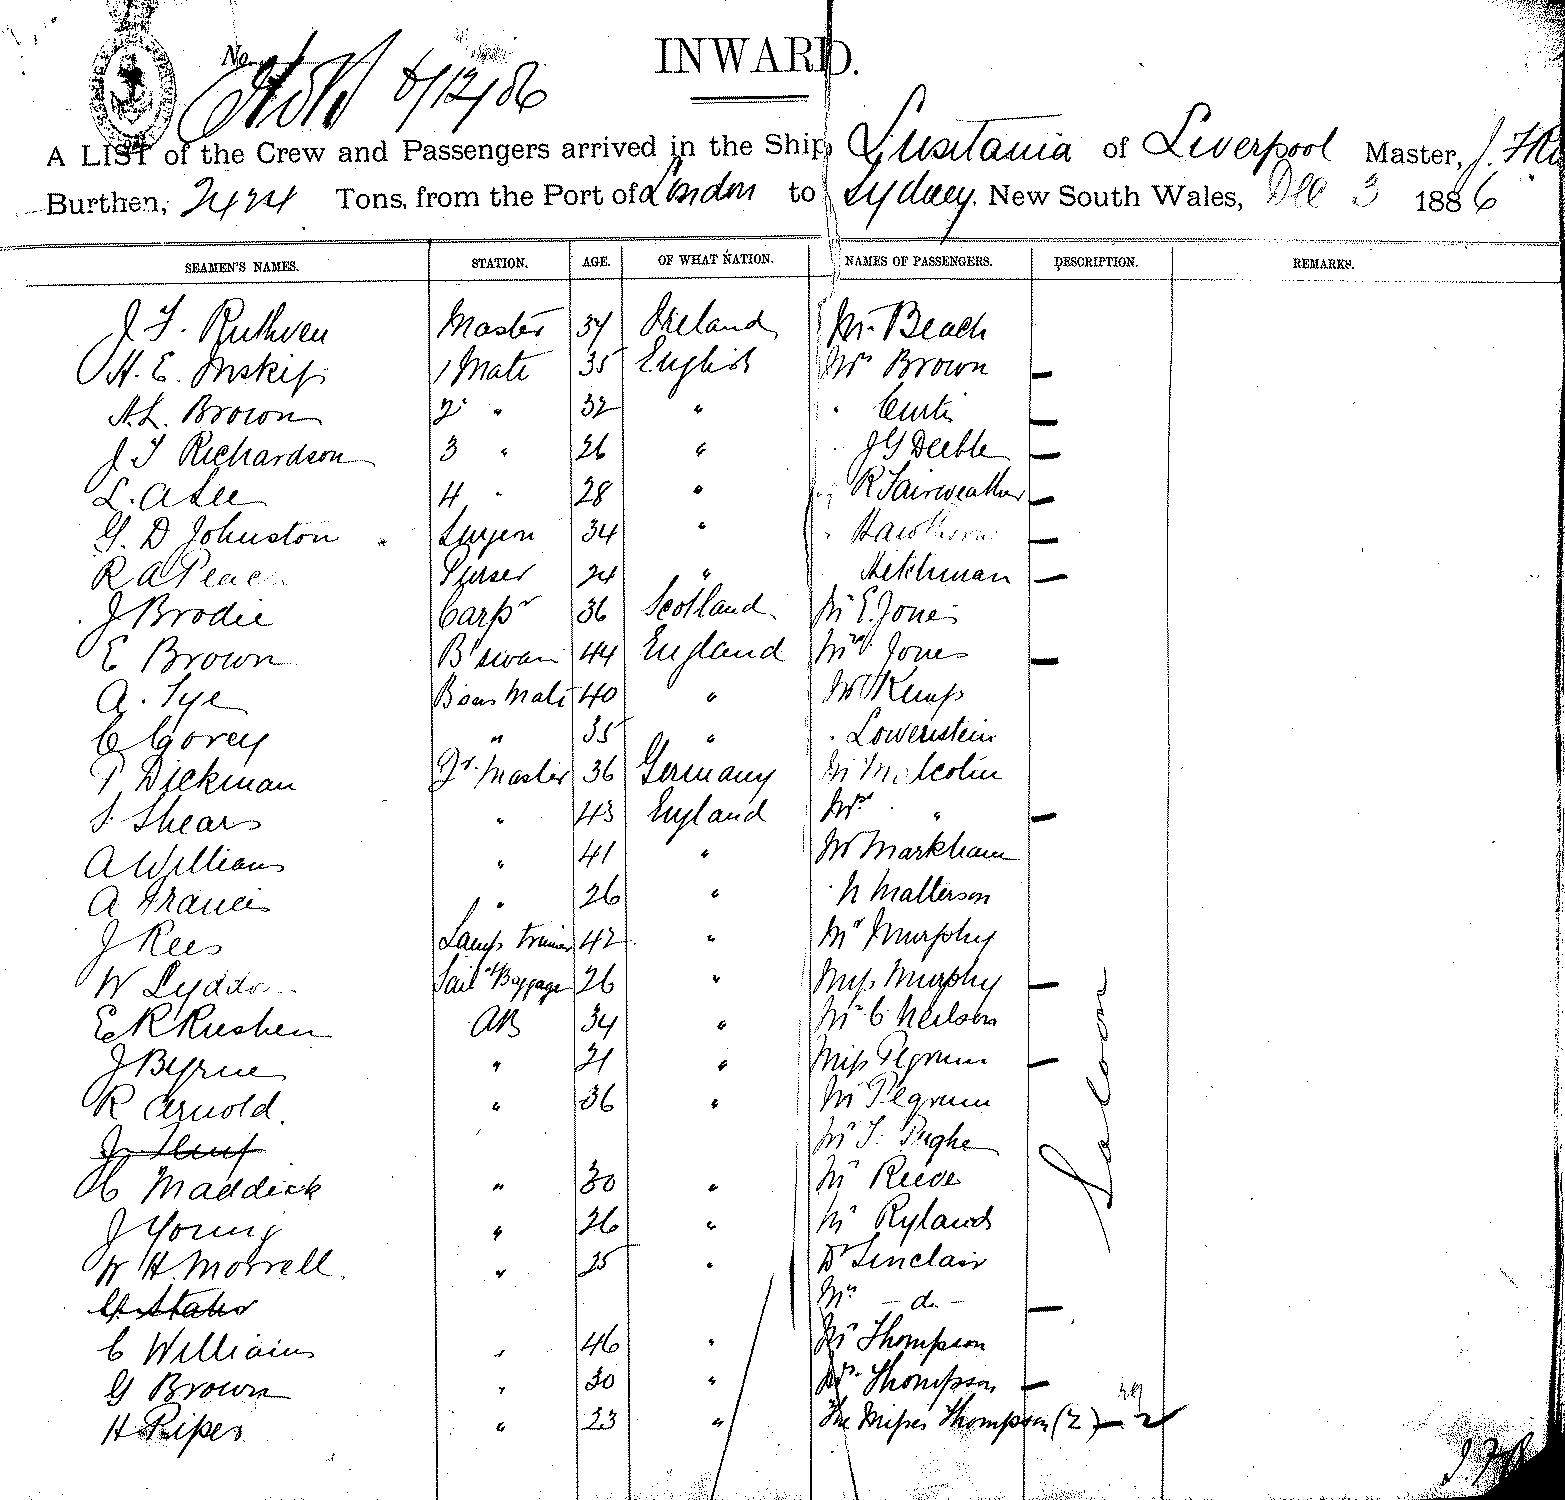 No.
8/12/86
INWARD.
A LIST of the Crew and Passengers arrived in the Ship, Lusitania of Liverpool Master, J. F.
Burthen, 2424 Tons, from the Port of London to Sydney, New South Wales, Dec 3 1886
SEAMEN'S NAMES. STATION. AGE. OF WHAT NATION. NAMES OF PASSENGERS. DESCRIPTION. REMARKS.
J F. Ruthven Master 37 Ireland Mr. Beach
H. E. Inskip 1 Mate 35 English Mrs Brown —
A. L. Brown 2 " 32 " " Curtis —
J T Richardson 3 " 26 " J G Deeble —
L. A Lee 4 " 28 " " R Fairweather —
G. D Johnston Surgeon 34 " " Hawthorn —
R A Peach Purser 24 " Hitchman —
J Brodie Carpr 36 Scotland Mr E. Jones
E Brown B'swain 44 England Mrs Jones —
A. Tye Bosns Mate 40 " Mr Kemp
C Corey " 35 " " Lowenstein
P Dickman Qr. Master 36 Germany Mr Malcolm
S. Shears " 43 England Mrs " —
A Williams " 41 " Mr Markham
A Francis " 26 " " N Matterson
J Rees Lamp trimmer 42 " Mr Murphy
W Lyddon Sail & Baggage 26 " Miss Murphy —
E R Rushen AB 34 " Mr C Neilson
J Byrne " 21 " Miss Pegrum —
R Arnold. " 36 " Mr Pegrum
Mr T. Pughe
C Maddick " 30 " Mr Reeve
J Young " 26 " Mr Rylands
W H. Morrell. " 25 " Dr Sinclair
Mrs — do — —
C Williams " 46 " Mr Thompson
G Brown " 30 " Mrs. Thompson —
H Piper " 23 " The Misses Thompson (2) — 2
Saloon
29